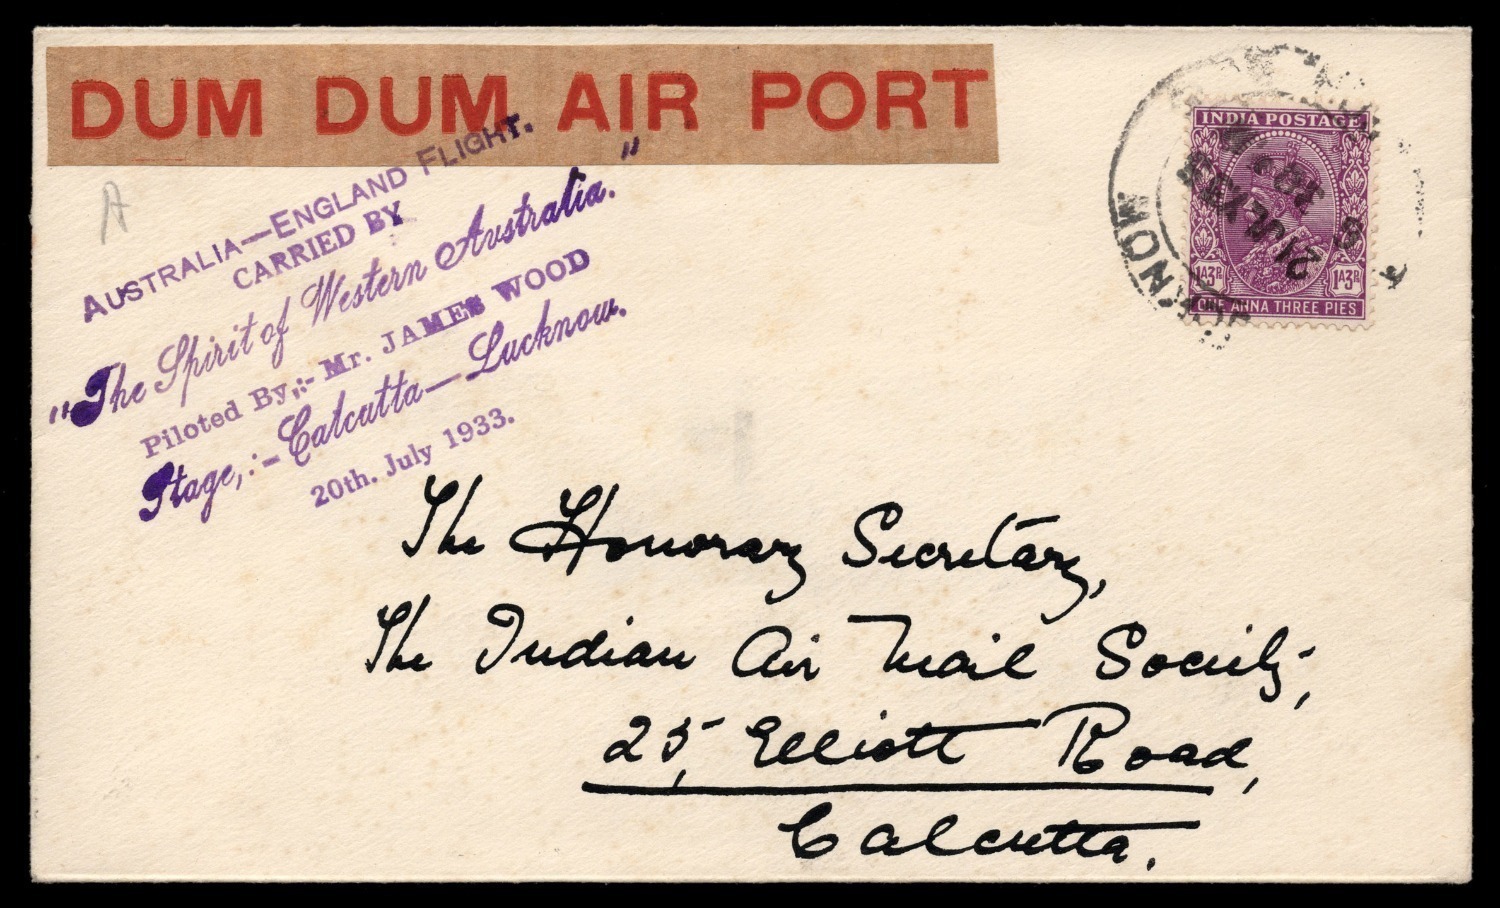 DUM DUM AIR PORT
A
AUSTRALIA—ENGLAND FLIGHT.
CARRIED BY
"The Spirit of Western Australia."
Piloted By,:- Mr. JAMES WOOD
Stage,:- Calcutta—Lucknow.
20th. July 1933.
INDIA POSTAGE
1A3P 1A3P
ONE ANNA THREE PIES
21 JUL
The Honorary Secretary,
The Indian Air Mail Society,
25, Elliott Road,
Calcutta.